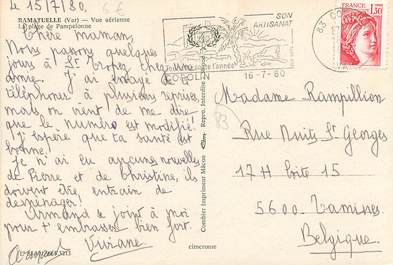 le 15/7/80.
RAMATUELLE (Var) — Vue aérienne
La plage de Pampelonne
Chère maman,
Nous passons quelques
jours à St Tropez chez une
dame. J'ai essayé de
téléphoner à plusieurs reprises
mais on vient de me dire
que le numéro est modifié!
J'espère que ta santé est
bonne.
Je n'ai eu aucunes nouvelles
de Pierre et de Christine, ils
doivent être entrain de
déménager!
Armand se joint à moi
pour t'embrasser bien fort.
Armand Viviane
Combier Imprimeur Mâcon
cimcrome
SON
ARTISANAT
de l'année
COGOLIN
16-7-80
83
1,30
Madame Rampillion
Rue Nuits St Georges
17 H Bte 15
5600 Tamines
Belgique